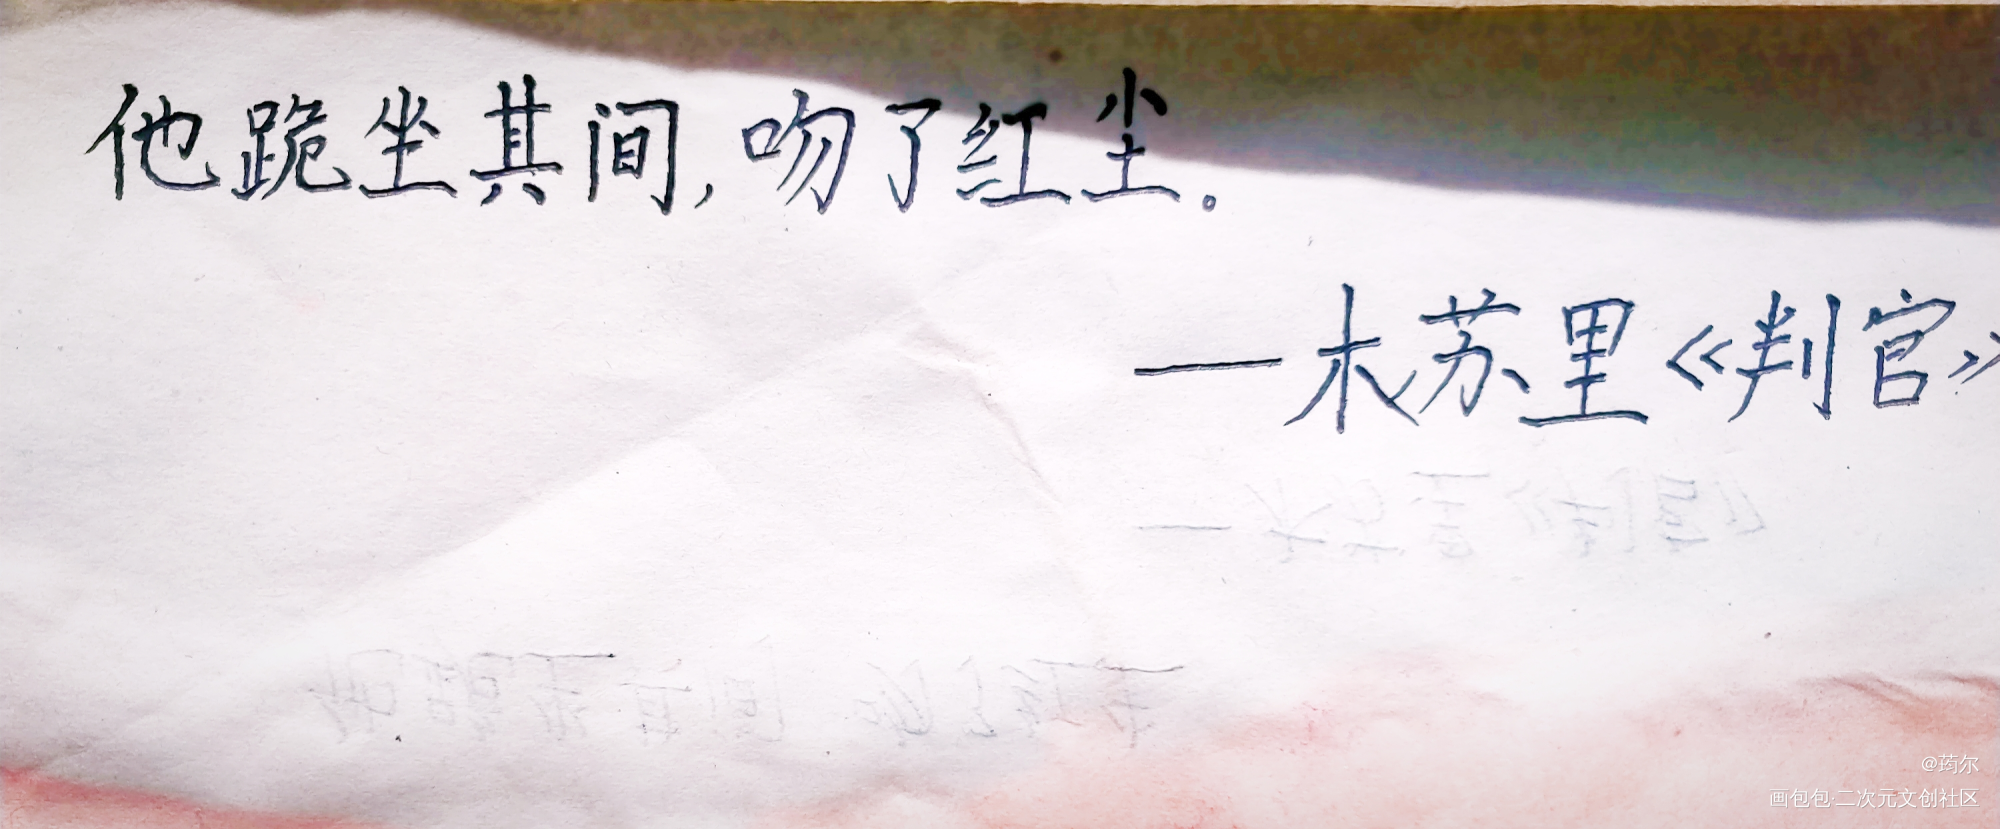 他跪坐其间,吻了红尘。
—木苏里《判官》
@荺尔
画包包·二次元文创社区